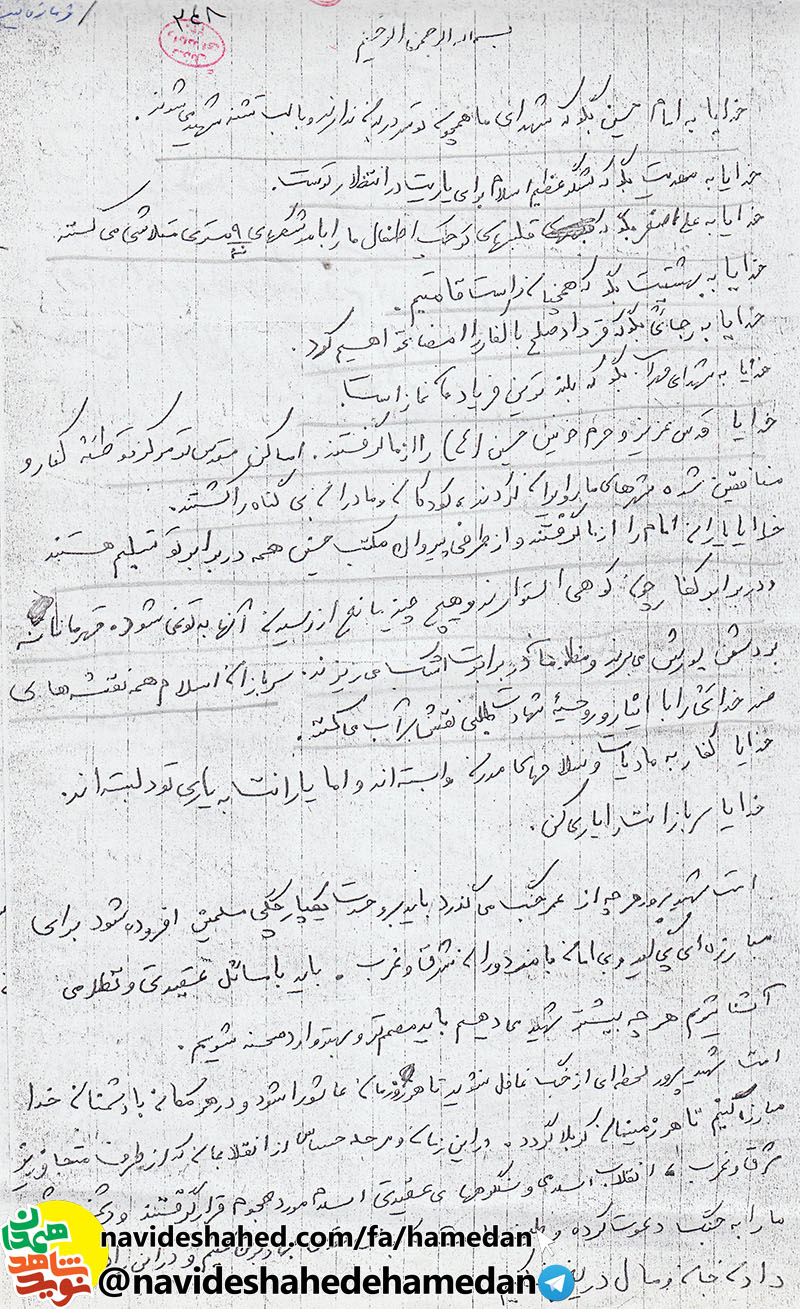 ۳۴۸
بسم الله الرحمن الرحیم
خدایا به امام حسین بگو که شهدای ما همچون تو سر در بدن ندارند و با لب تشنه شهید می‌شوند.
خدایا به مهدیت بگو که لشگر عظیم اسلام برای یاریت در انتظار توست.
خدایا به علی اصغر بگو که قلبهای کوچک اطفال ما را با موشکهای ۹ متری متلاشی می‌کنند
خدایا به بهشتیت بگو که همچنان راست قامتیم.
خدایا به رجائی بگو که قرارداد صلح با کفار را امضا نخواهیم کرد.
خدایا به شهدای محراب بگو که بلند ترین فریاد ما نماز است.
خدایا قدس عزیز و حرم خونین حسین (ع) را از ما گرفتند. اماکن مقدس تو مرکز توطئه کفار و
منافقین شده شهرهای ما را ویران کردند، کودکان و مادران بی گناه را کشتند.
خدایا یاران امام را از ما گرفتند و از طرفی پیروان مکتب حسین همه در برابر تو تسلیم هستند
و در برابر کفار چون کوهی استوارند و هیچ چیز مانع از رسیدن آنها به تو نمی‌شود. قهرمانانه
بر دشمن یورش می‌برند و مظلومانه در برابرت اشک می‌ریزند. سربازان اسلام همه نقشه های
ضد خدائی را با ایثار و روحیهٔ شهادت طلبی نقش بر آب می‌کنند.
خدایا کفار به مادیات و سلاحهای مدرن وابسته‌اند و اما یارانت به یاری تو دلبسته‌اند.
خدایا سربازانت را یاری کن.
امت شهید پرور هر چه از عمر جنگ می‌گذرد باید بر وحدت یکپارچگی مسلمین افزوده شود برای
مبارزه‌ای پی‌گیر و بی‌امان با مزدوران شرق و غرب. باید با مسائل عقیدتی و نظامی
آشنا شویم هر چه بیشتر شهید می‌دهیم باید مصمم‌تر و بهتر وارد صحنه شویم.
امت شهید پرور لحظه‌ای از جنگ غافل نشوید تا هر روزمان عاشورا شود و در هر مکان با دشمنان خدا
مبارزه کنیم تا هر زمینمان کربلا گردد. در این زمان و مرحله حساس از انقلابمان که از طرف متجاوزین
شرق و غرب، انقلاب اسلامی و سنگرهای عقیدتی اسلام مورد هجوم قرار گرفتند و
ما را به جنگ دعوت کرده و
دادن جان و مال در
navideshahed.com/fa/hamedan
@navideshahedehamedan
نوید شاهد همدان